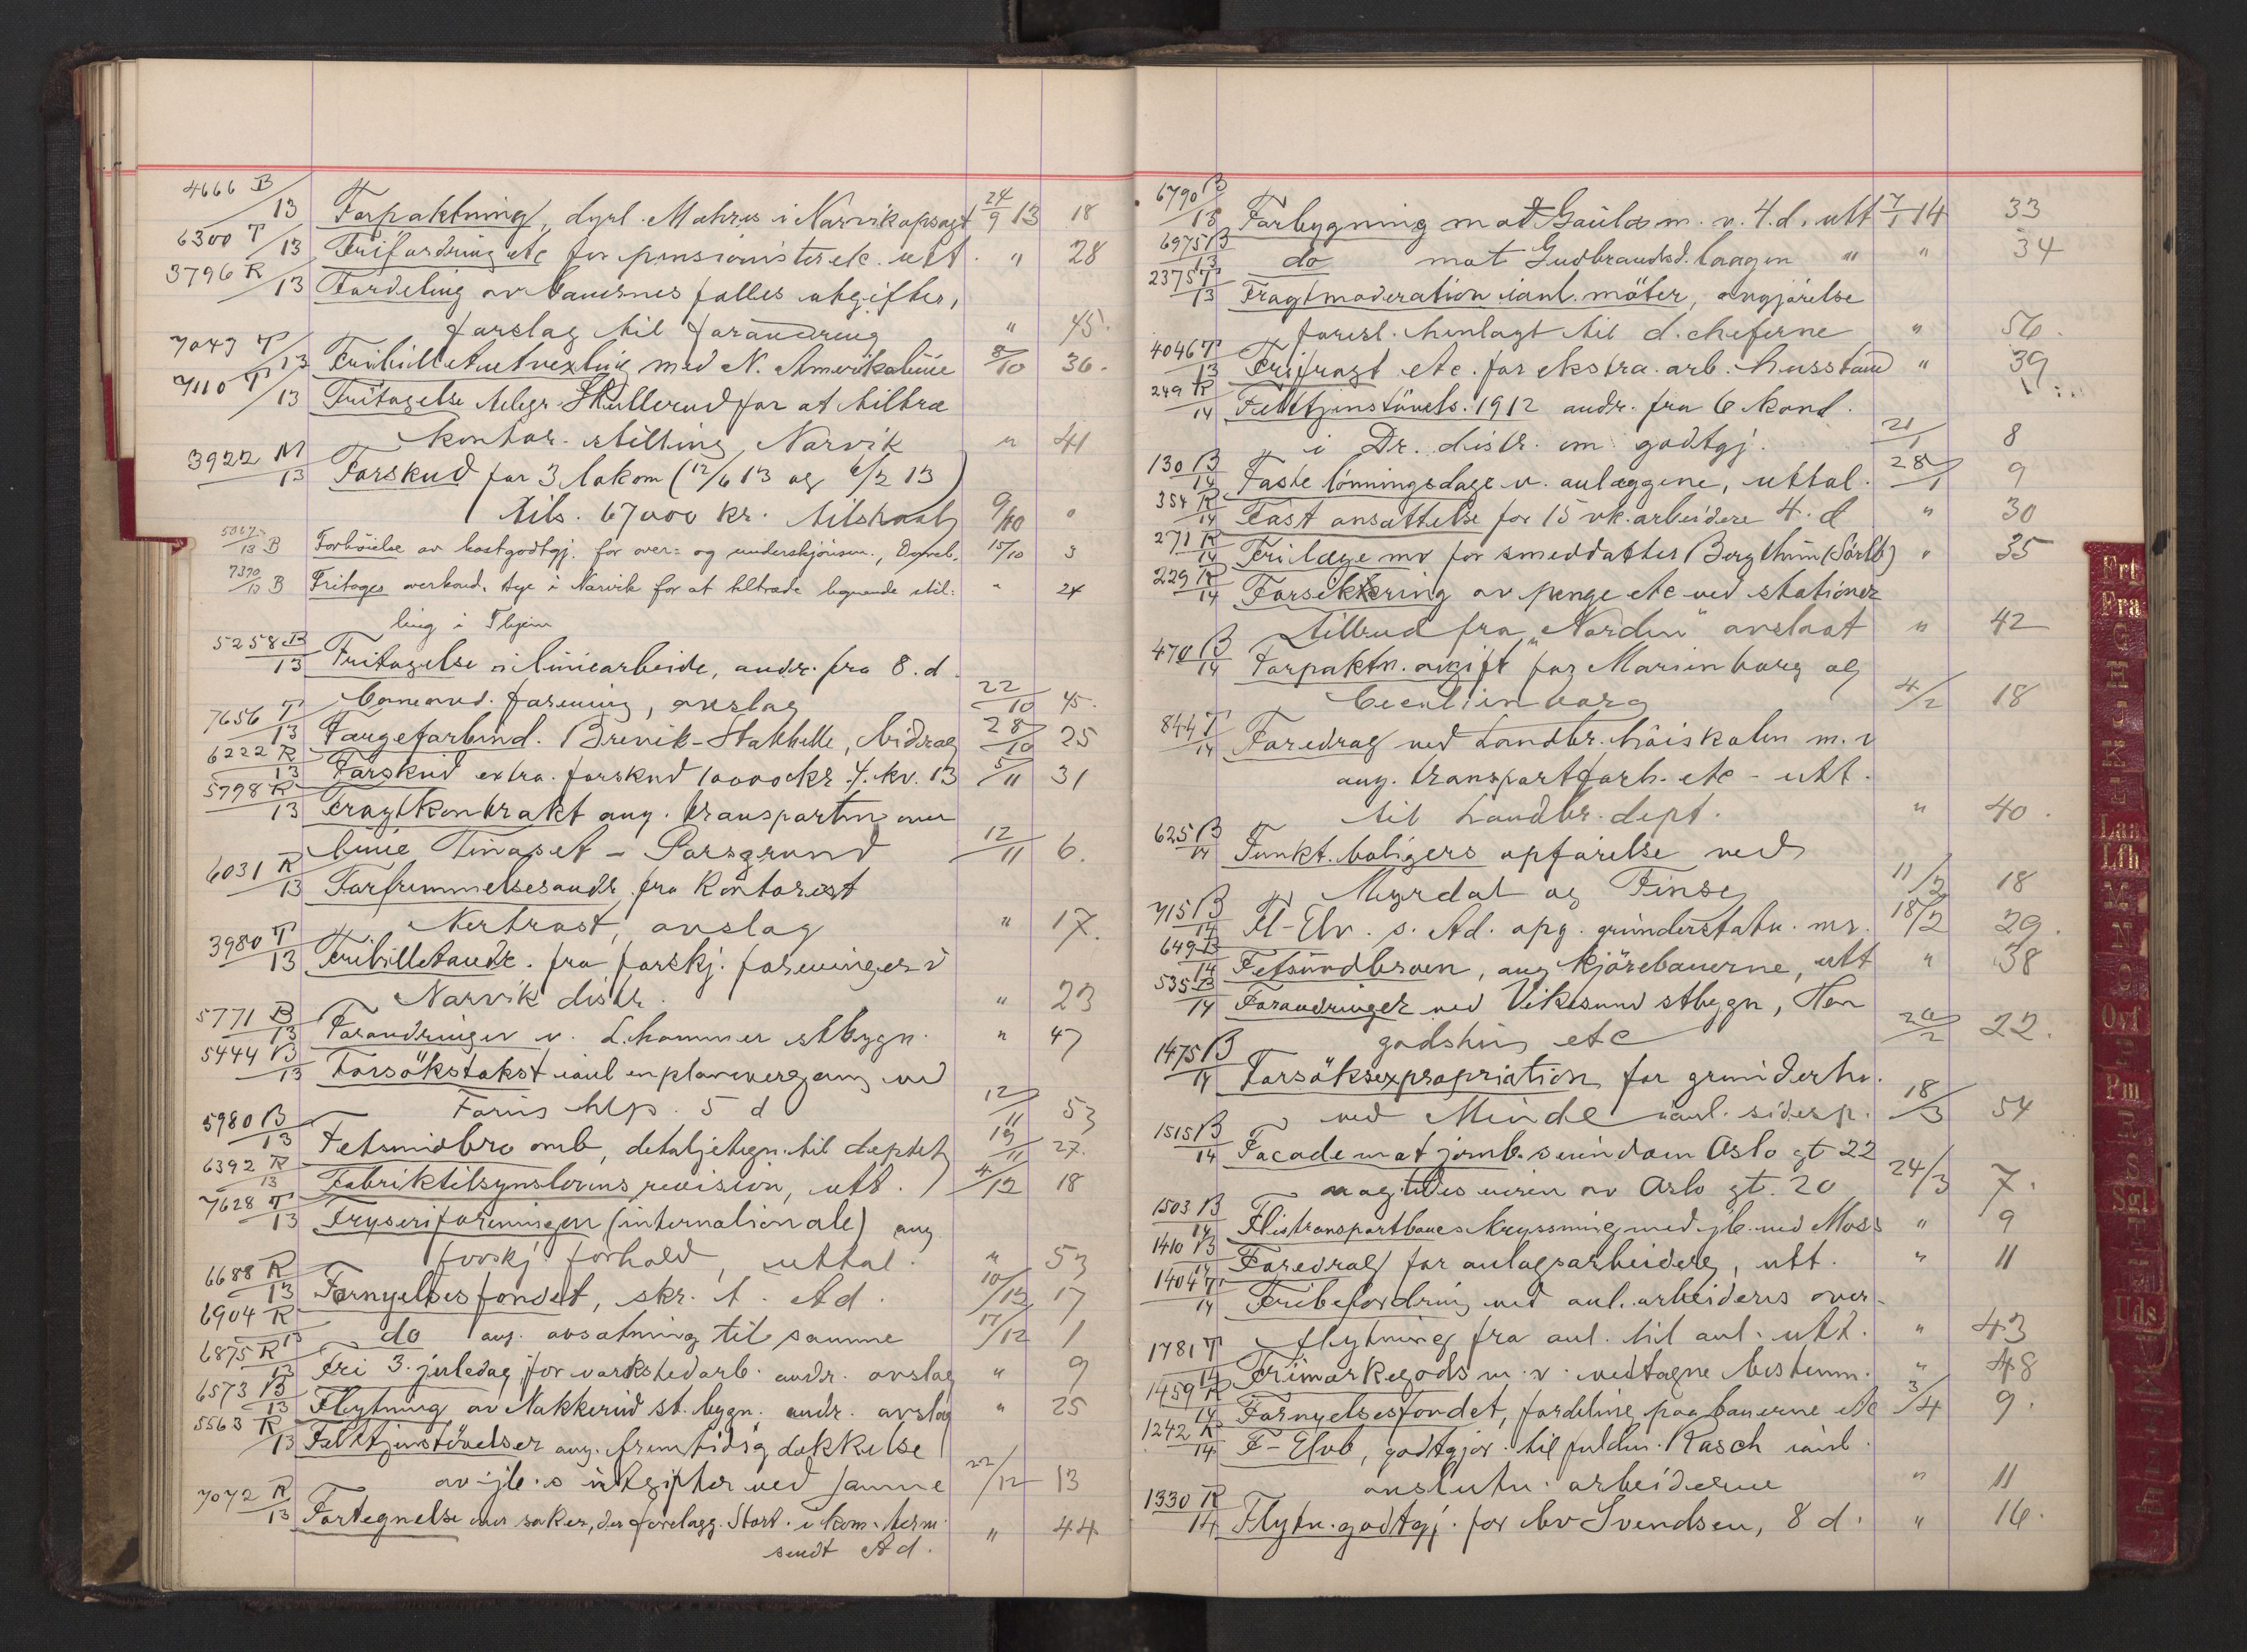 4666 B/13 Forpaktning, dyrl. Mohrs i Narvik opsagt 24/9 13 18
6300 T/13 Trifordring etc for pensionister etc. utt. " 28
3796 R/13 Fordeling av banernes fælles utgifter,
forslag til forandring " 45.
7043 T/13 Fribilletutvexling med N. Amerikalinie 8/10 36.
7110 T/13 Fritagelse telegr. Skullerud for at tiltræ
kontor-stilling, Narvik " 41
3922 M/13 Forskud for 3 lokom (12/6 13 og 6/2 13)
tils. 67000 kr. tilstaaet 9/10 "
13 B Forhöielse av kostgodtgj. for over= og underskjönsm., Dovreb. 15/10 3
7390/13 B Fritages overkond. i Narvik for at tiltræde lignende stil= " 24
ling i Thjem
5258 B/13 Fritagelse liniearbeide, andr. fra 8. d.
Baneavd. forening, avslag 22/10 45.
7656 T/13 Færgeforbind. Brevik-Stathelle, bidrag 28/10 25
6222 R/13 Forskud extra. forskud 100000 kr. 4. kv. 13 5/11 31
5798 R/13 Fragtkontrakt ang. transporten over
linie Tinoset - Porsgrund 12/11 6.
6031 R/13 Forfremmelsesandr. fra kontorist
avslag " 17.
3980 T/13 Fribilletandr. fra forskj. foreninger i
Narvik distr. " 23
5771 B/13 Forandringer v. L.hammer stbygn. " 47
5444 B/13 Forsökstakst ianl en planovergang ved
Farris hlp. 5 d 12/11 53
5980 B/13 Fetsundbro omb, detaljtegn. til deptet 19/11 27.
6392 R/13 Fabriktilsynslovens revision, utt. 4/12 18
7628 T/13 Fryseriforeningen (internationale) ang
forskj forhold, uttal. " 53
6688 R/13 Fornyelsesfondet, skr. t. Ad. 10/12 17
6904 R/13 do ang. avsætning til samme 17/12 1
6875 R/13 Fri 3. juledag for verkstedarb. andr. avslag " 9
6573 B/13 Flytning av Nakkerud st. bygn. andr. avslag " 25
5563 R/13 Felttjenstövelser ang. fremtidig dækkelse
av jb.s utgifter ved samme 22/12 13
7072 R/13 Fortegnelse over saker, der forelægg. Stort. i kom. term.
sendt Ad. " 44
6790 B/13 Forbygning mot Gaula m. v. 4. d. utt 7/1 14 33
6975 B/13 do mot Gudbrandsd.laagen " " 34
2375 T/13 Fragtmoderation ianl. möter, avgjörelse
foresl. henlagt til d. cheferne " 56.
4046 T/13 Frifragt etc. for ekstra. arb. husstand " 39
249 R/14 Felttjenstövels. 1912 andr. fra 6 kond.
i Dr. distr. om godtgj. 21/1 8
130 B/14 Faste lönningsdage v. anlæggene, uttal. 28/1 9
354 R/14 Fast ansættelse for 15 vk. arbeidere 4. d " 30
271 R/14 Fri læge mv for smeddatter Bergthun (Sörlb) " 35
229 R/14 Forsikkring av penge etc ved stationer
tilbud fra "Norden" avslaat " 42
470 B/14 Forpaktn. avgift for Marienborg og
Cecilienborg 4/2 18
844 T/14 Foredrag ved Landbr. höiskolen m. v
ang. transportforh. etc - utt.
til Landbr. dept. " 40.
625 B/14 Funkt. boligers opförelse ved
Myrdal og Finse 11/2 18
715 B/14 Fl-Elv. s. Ad. opg. grunderstatn. mv. 18/2 29.
649 B/14 Fetsundbroen, ang kjörebanerne, utt " 38
535 B/14 Forandringer ved Vikesund stbygn, Hen
godshus etc 20/2 22.
1475 B/14 Forsöksexpropriation for grunderhv.
ved Minde ianl. sidesp. 18/3 54
1515 B/14 Facade mot jernb.s eiendom Oslo gt 22
av Oslo gt. 20 24/3 7.
1503 B/14 Flistransportbanes krydsning med jb. ved Moss " 9
1410 B/14 Foredrag for anlægsarbeidere, utt. " 11
1404 T/14 Fribefordring ved anl. arbeideres over-
flytning fra anl. til anl. utt. " 43
1781 T/14 Frimerkegods m. v. vedtagne bestemm. " 48
1459 R/14 Fornyelsesfondet, fordeling paa banerne etc 3/4 9.
1242 R/14 F-Elvb, godtgjör. til fuldm. Rasch ianl.
avslutn. arbeiderne " 11
1330 R/14 Flytn. godtgj. for bv Svendsen, 8 d. " 16.
Frt
Fra
G
H
J
K
L
Laa
Lfh
M
N
O
Ovf
P
Pm
R
S
Sgl
T
U
Uds